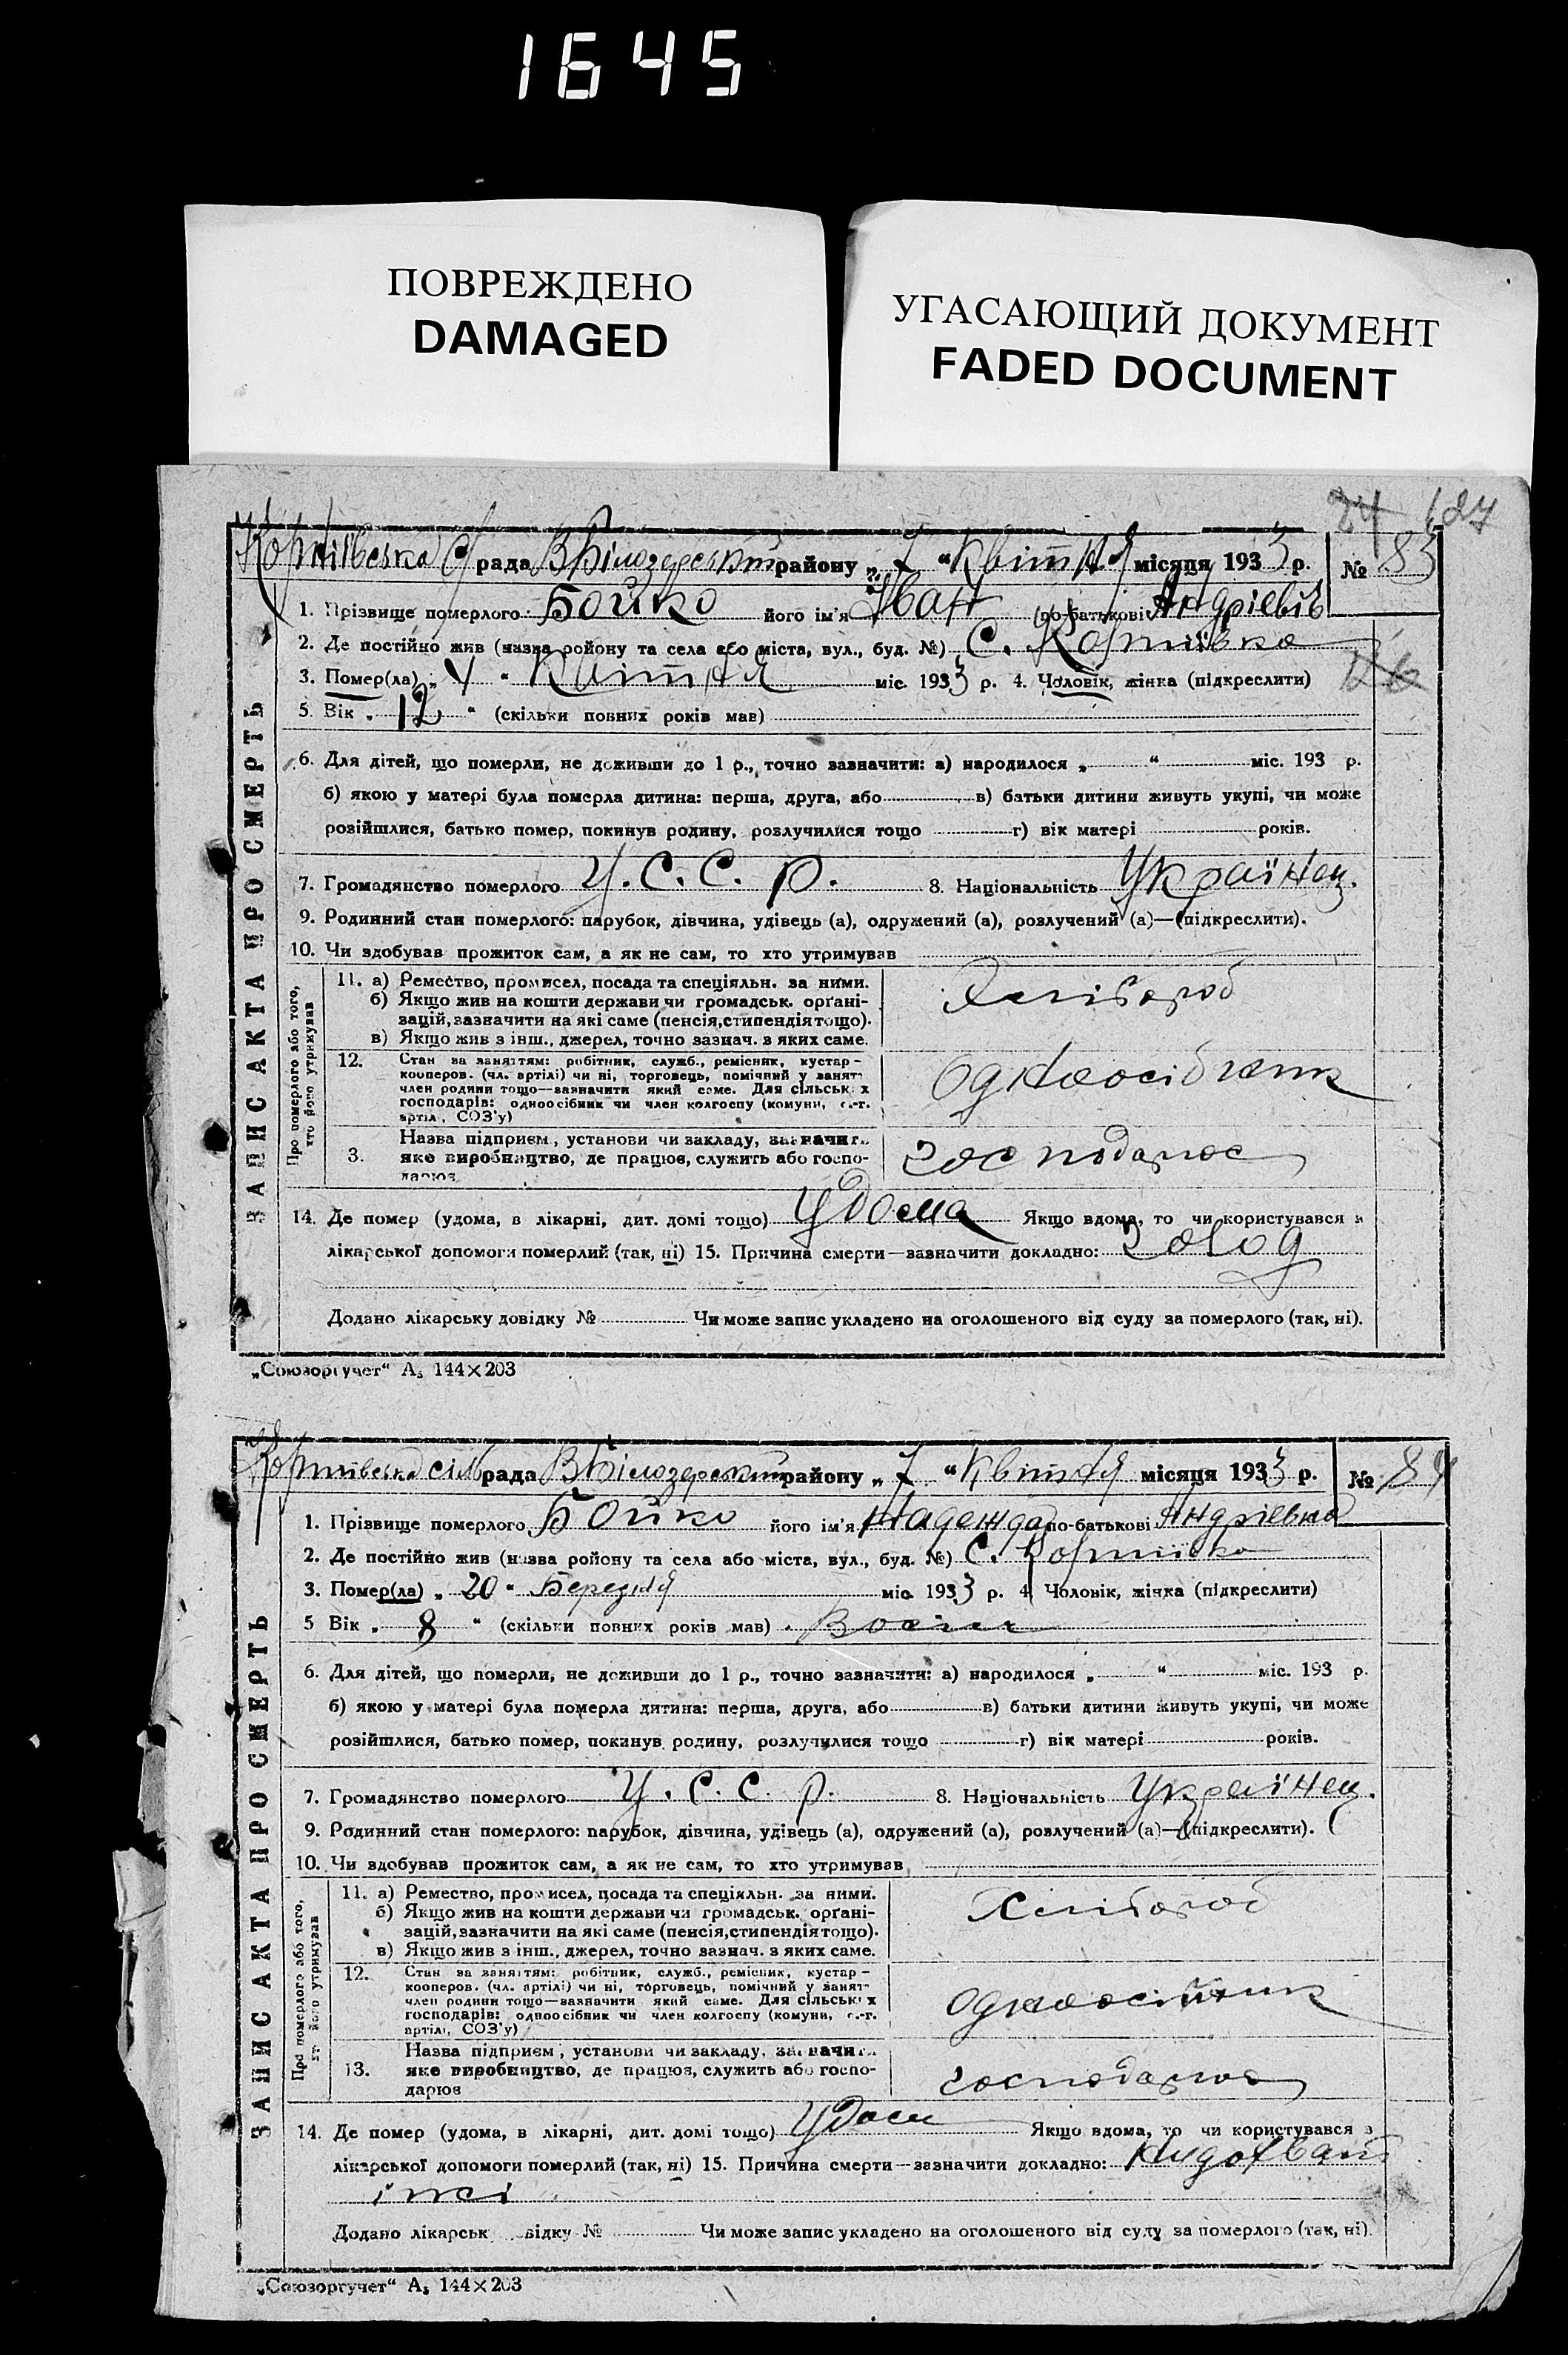 1645
ПОВРЕЖДЕНО
DAMAGED
УГАСАЮЩИЙ ДОКУМЕНТ
FADED DOCUMENT
24 127
рада В Білозерський району „ 7 “ Квітня місяця 1933 р. № 83
ЗАПИС АКТА ПРО СМЕРТЬ
1. Прізвище померлого Бойко його ім'я Іван по-батькові Андрієвів
2. Де постійно жив (назва ройону та села або міста, вул., буд. №) С. Корніївка
3. Помер(ла) „ 4 “ Квітня міс. 1933 р. 4. Чоловік, жінка (підкреслити)
5. Вік „ 12 “ (скільки повних років мав)
6. Для дітей, що померли, не доживши до 1 р., точно зазначити: а) народилося „ “ міс. 193 р.
б) якою у матері була померла дитина: перша, друга, або в) батьки дитини живуть укупі, чи може
розійшлися, батько помер, покинув родину, розлучилися тощо г) вік матері років.
7. Громадянство померлого У.С.С.Р. 8. Національність Українец.
9. Родинний стан померлого: парубок, дівчина, удівець (а), одружений (а), розлучений (а)—(підкреслити).
10. Чи здобував прожиток сам, а як не сам, то хто утримував
Про померлого або того, хто його утримував
11. а) Ремество, промисел, посада та спеціяльн. за ними.
б) Якщо жив на кошти держави чи громадськ. орґані-
зацій, зазначити на які саме (пенсія, стипендія тощо).
в) Якщо жив з інш., джерел, точно зазнач. з яких саме.
Хлібороб
12. Стан за заняттям: робітник, служб., ремісник, кустар-
кооперов. (чл. артілі) чи ні, торговець, помічний у занят.
член родини тощо—зазначити який саме. Для сільських
господарів: одноосібник чи член колгоспу (комуни, с.-г.
артіл., СОЗ'у)
Одноосібник
3. Назва підприєм., установи чи закладу, зазначит.
яке виробництво, де працює, служить або госпо-
дарює
господарює
14. Де помер (удома, в лікарні, дит. домі тощо) Удома Якщо вдома, то чи користувався з
лікарської допомоги померлий (так, ні) 15. Причина смерти—зазначити докладно: голод
Додано лікарську довідку № Чи може запис укладено на оголошеного від суду за померлого (так, ні).
„Союзоргучет“ А₅ 144×203
рада В Білозерський району „ 7 “ Квітня місяця 1933 р. № 84
ЗАПИС АКТА ПРО СМЕРТЬ
1. Прізвище померлого Бойко його ім'я Надежда по-батькові Андрієвна
2. Де постійно жив (назва ройону та села або міста, вул., буд. №) С. Корніївка
3. Помер(ла) „ 20 “ Березня міс. 1933 р. 4. Чоловік, жінка (підкреслити)
5 Вік „ 8 “ (скільки повних років мав)
6. Для дітей, що померли, не доживши до 1 р., точно зазначити: а) народилося „ “ міс. 193 р.
б) якою у матері була померла дитина: перша, друга, або в) батьки дитини живуть укупі, чи може
розійшлися, батько помер, покинув родину, розлучилися тощо г) вік матері років.
7. Громадянство померлого У.С.С.Р. 8. Національність Українец.
9. Родинний стан померлого: парубок, дівчина, удівець (а), одружений (а), розлучений (а)—(підкреслити).
10. Чи здобував прожиток сам, а як не сам, то хто утримував
Про померлого або того, хто його утримував
11. а) Ремество, промисел, посада та спеціяльн. за ними.
б) Якщо жив на кошти держави чи громадськ. орґані-
зацій, зазначити на які саме (пенсія, стипендія тощо).
в) Якщо жив з інш., джерел, точно зазнач. з яких саме.
Хлібороб
12. Стан за заняттям: робітник, служб., ремісник, кустар-
кооперов. (чл. артілі) чи ні, торговець, помічний у занят.
член родини тощо—зазначити який саме. Для сільських
господарів: одноосібник чи член колгоспу (комуни, с.-г.
артілі, СОЗ'у)
одноосібник
13. Назва підприєм., установи чи закладу, зазначит.
яке виробництво, де працює, служить або госпо-
дарює
господарює
14. Де помер (удома, в лікарні, дит. домі тощо) Удома Якщо вдома, то чи користувався з
лікарської допомоги померлий (так, ні) 15. Причина смерти—зазначити докладно:
Додано лікарськ відку № Чи може запис укладено на оголошеного від суду за померлого (так, ні).
„Союзоргучет“ А₅ 144×203